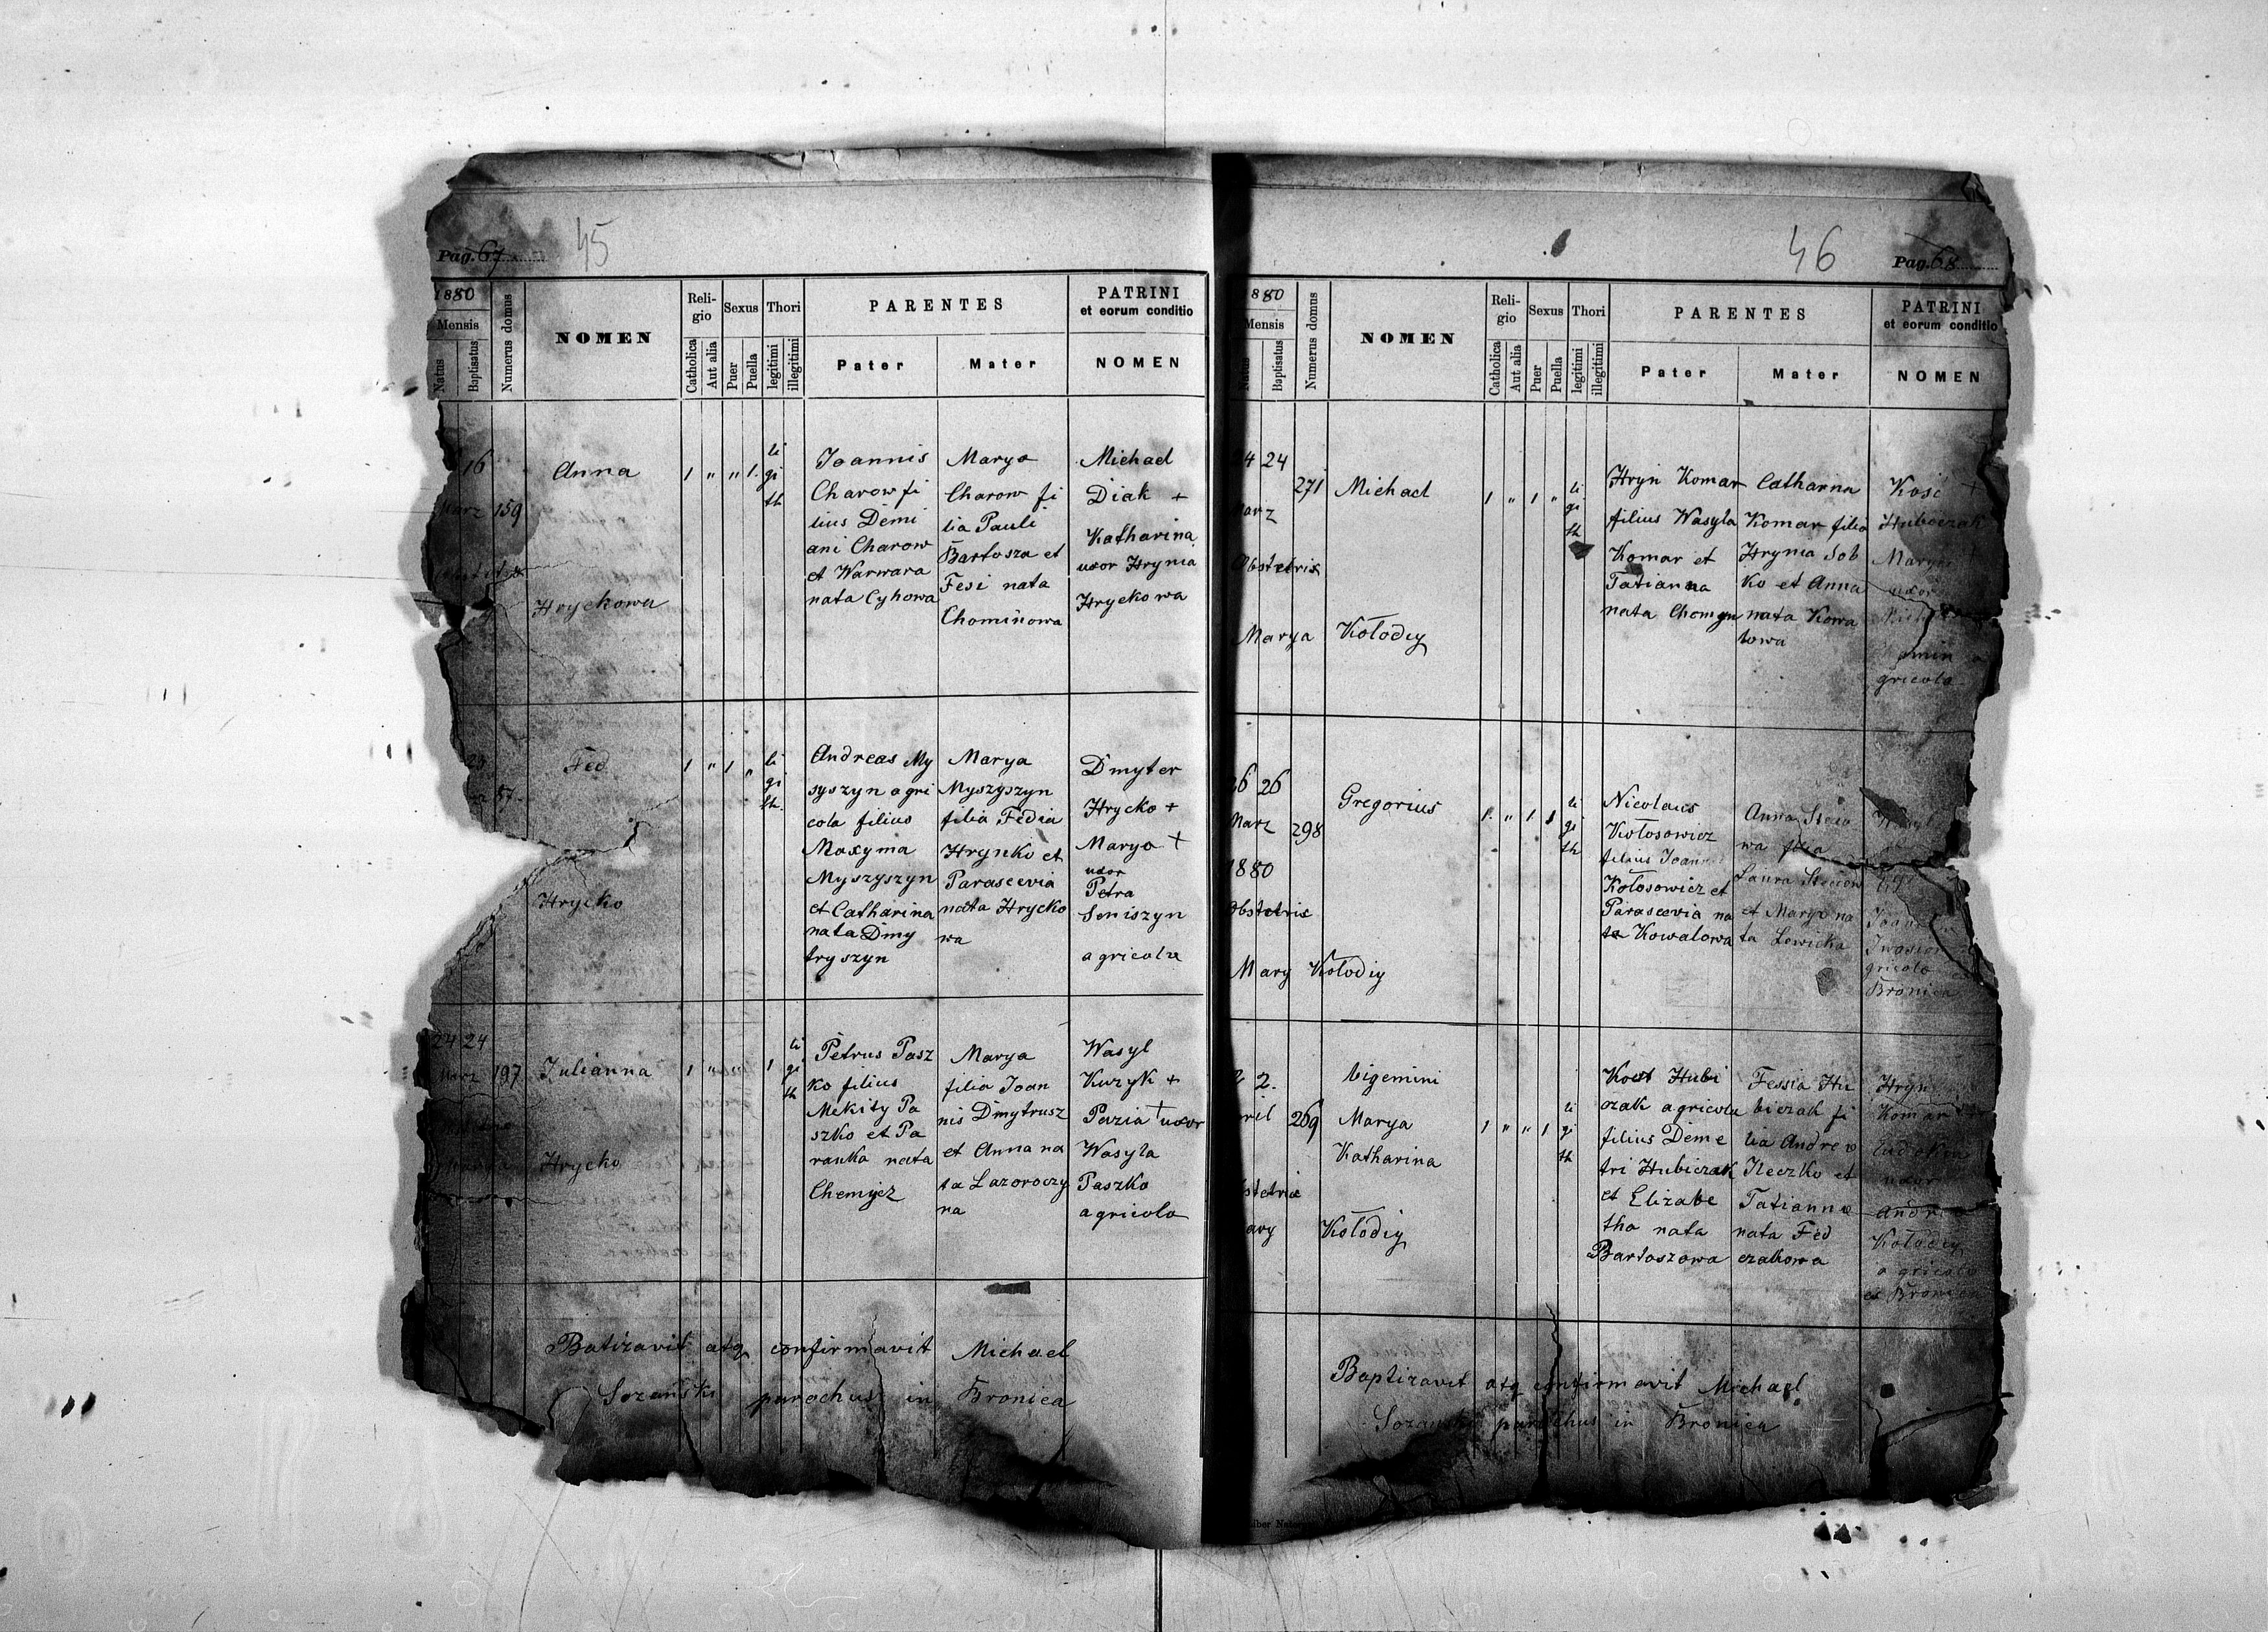 Pag. 67
45
1880
Mensis
Natus
Baptisatus
Numerus domus
NOMEN
Reli-
gio
Catholica
Aut alia
Sexus
Puer
Puella
Thori
legitimi
illegitimi
PARENTES
Pater
Mater
PATRINI
et eorum conditio
NOMEN
16
Marz 159
Anna
1 " " 1.
li
gi
th
Joannis
Charow fi
lius Demi
ani Charow
et Warwara
nata Cyhowa
Marya
Charow fi
lia Pauli
Bartosza et
Fesi nata
Chominowa
Michael
Diak +
Katharina
uxor Hrynia
Hryckowa
Hryckowa
Fed
1 " 1 "
li
gi
th.
Andreas My
syszyn agri
cola filius
Maxyma
Myszyszyn
et Catharina
nata Dmy
tryszyn
Marya
Myszyszyn
filia Fedia
Hrynko et
Parascevia
nata Hrycko
wa
Dmyter
Hrycko +
Marya +
uxor
Petra
Seniszyn
agricolæ
Hrycko
24 24
Marz 197
Julianna
1 " " 1
li
gi
th
Petrus Pasz
ko filius
Mekity Pa
szko et Pa
raska nata
Chemycz
Marya
filia Joan
nis Dmytrusz
et Anna na
ta Lazoroczy
na
Wasyl
Kuzyk +
Pazia + uxor
Wasyla
Paszko
agricola
Hrycko
Batizavit atq confirmavit Michael
Sozański parochus in Bronica
46
Pag. 68
1880
Mensis
Natus
Baptisatus
Numerus domus
NOMEN
Reli-
gio
Catholica
Aut alia
Sexus
Puer
Puella
Thori
legitimi
illegitimi
PARENTES
Pater
Mater
PATRINI
et eorum conditio
NOMEN
24 24
Marz
271
Michael
1 " 1 "
li
gi
th
Hryn Komar
filius Wasyla
Komar et
Tatianna
nata Chomyn
Catharina
Komar filia
Hrynia Sob
ko et Anna
nata Kowa
lowa
Kość +
Hubiczak
Marya
uxor
agricola
Obstetrix
Marya Kołodiy
26 26
Marz 298
1880
Gregorius
1 " 1
li
gi
th
Nicolaus
Kołosowicz
filius Joan
Kołosowicz et
Parascevia na
ta Kowalowa
Anna Stecio
wa filia
Laura Steciow
et Marya na
ta Lewicka
Wasyl
gricola
Bronica
Obstetrix
Mary Kołodiy
2 2.
269
bigemini
Marya
Katharina
1 " " 1
li
gi
th
Kost Hubi
czak agricola
filius Deme
tri Hubiczak
et Elizabe
tha nata
Bartoszowa
Fessia Hu
biczak fi
lia Andrew
Ileczko et
Tatianna
nata Fed
czakowa
Hryn
Komar
uxor
Kołodiy
agricola
ex Bronica
Kołodiy
Baptizavit atq confirmavit Michael
Sozański parochus in Bronica